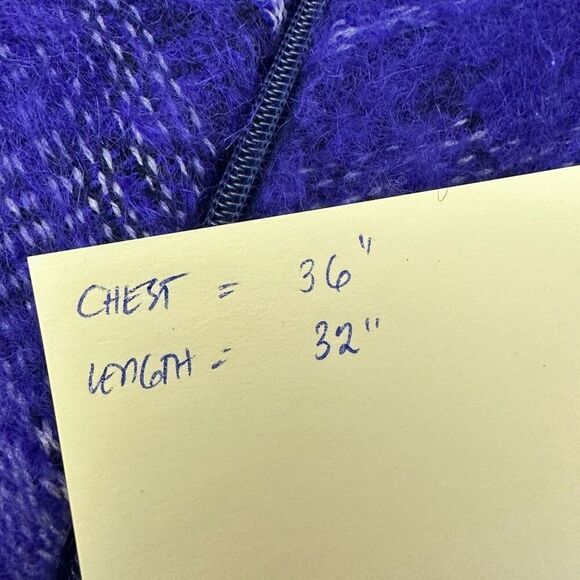 CHEST = 36"
LENGTH = 32"